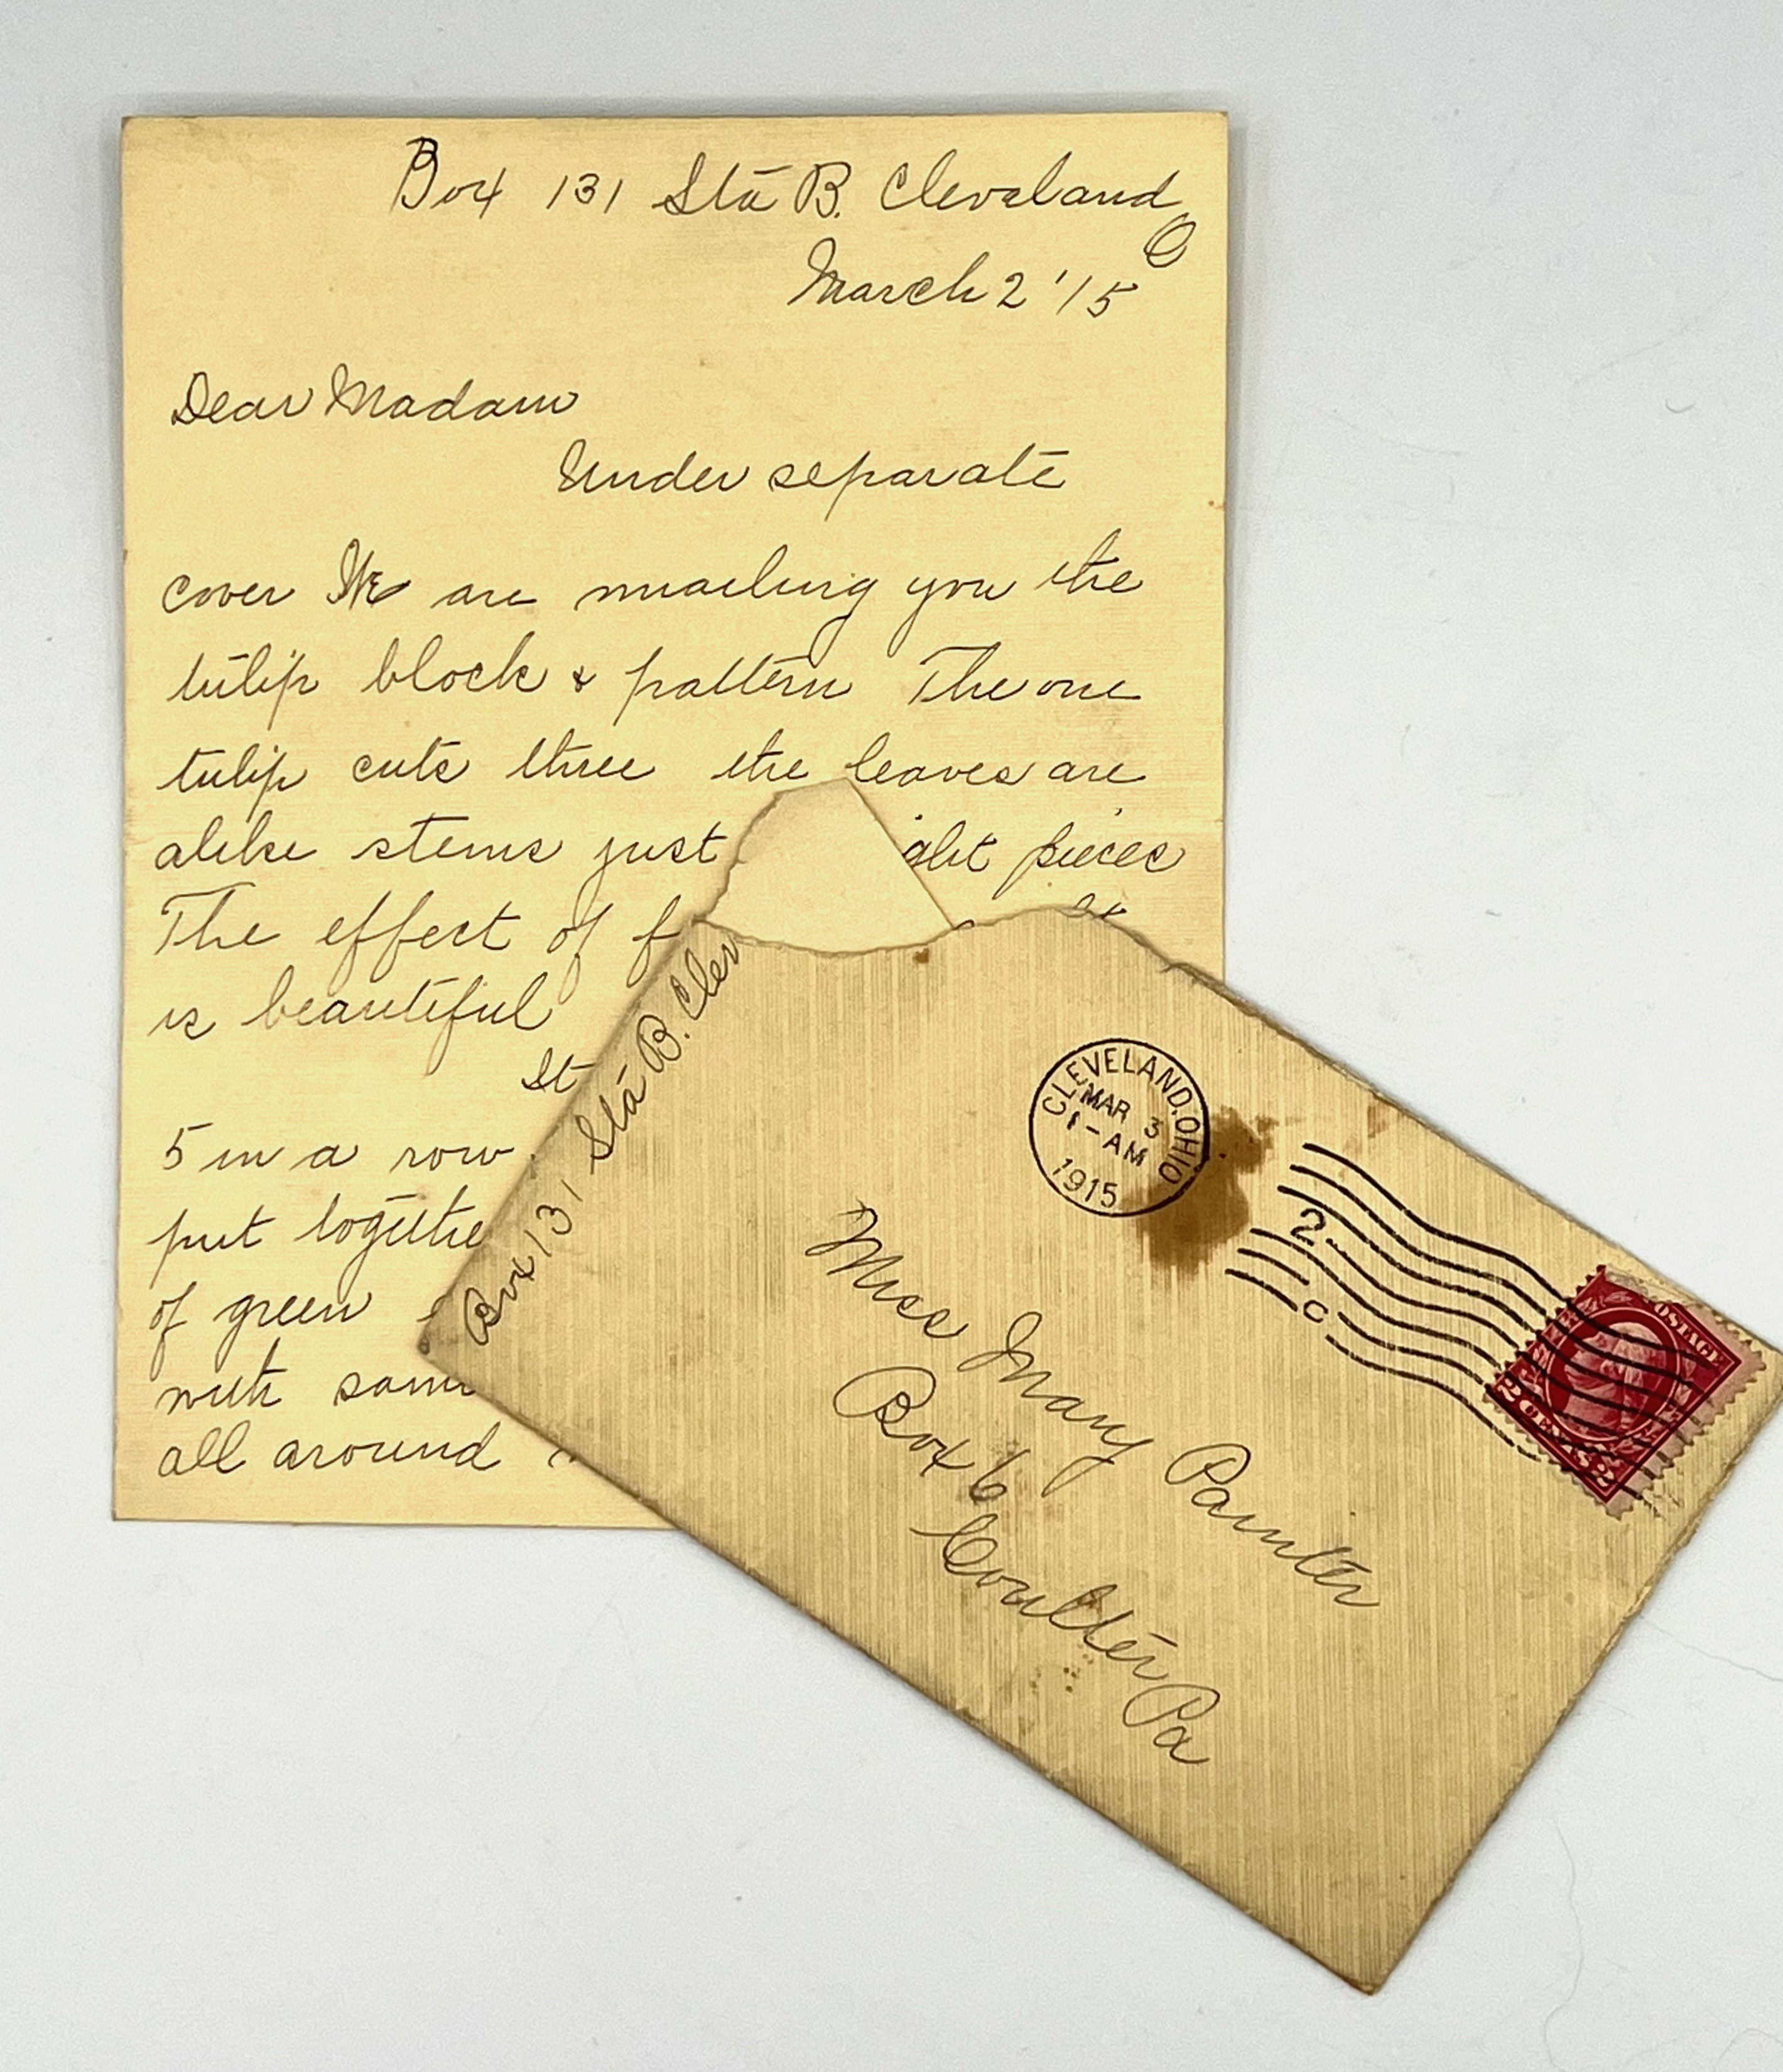 Box 131 Sta B. Cleveland
O
March 2 '15
Dear Madam
Under separate
cover We are mailing you the
tulip block & pattern The one
tulip cuts three the leaves are
alike stems just ght pieces
The effect of f
is beautiful
St
5 in a row
put togethe
of green
with same
all around
Box 131 Sta B. Clev
CLEVELAND, OHIO
MAR 3
1-AM
1915
2
C
POSTAGE
2 CENTS 2
Miss Mary Painter
Box 6
Coulter Pa